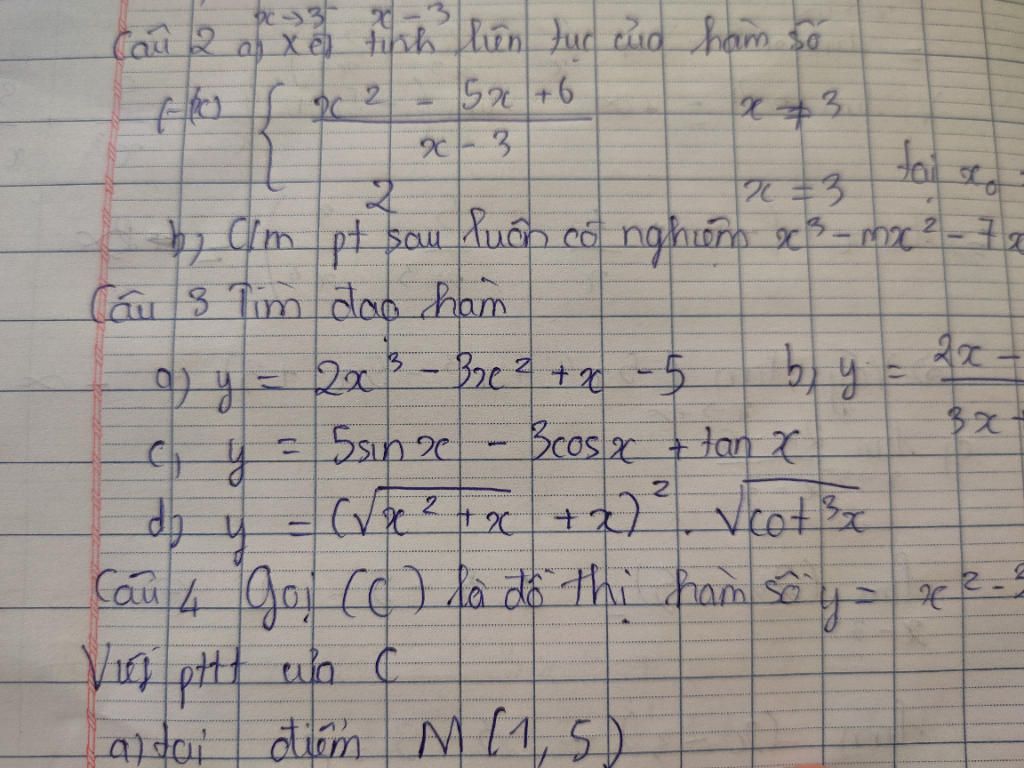 x→3 x-3
Câu 2 a, xét tính liên tục của hàm số
f(x) { x² - 5x + 6 x ≠ 3
x - 3
2 x = 3 tại x₀
b, C/m pt sau luôn có nghiệm x³ - mx² - 7x
Câu 3 Tìm đạo hàm
a) y = 2x³ - 3x² + x - 5 b, y = 2x -
3x +
c, y = 5sinx - 3cosx + tan x
d, y = (√x² + x + x)² . √cot³x
Câu 4 Gọi (C) là đồ thị hàm số y = x² - 3
Viết pttt của C
a) tại điểm M(1,5)